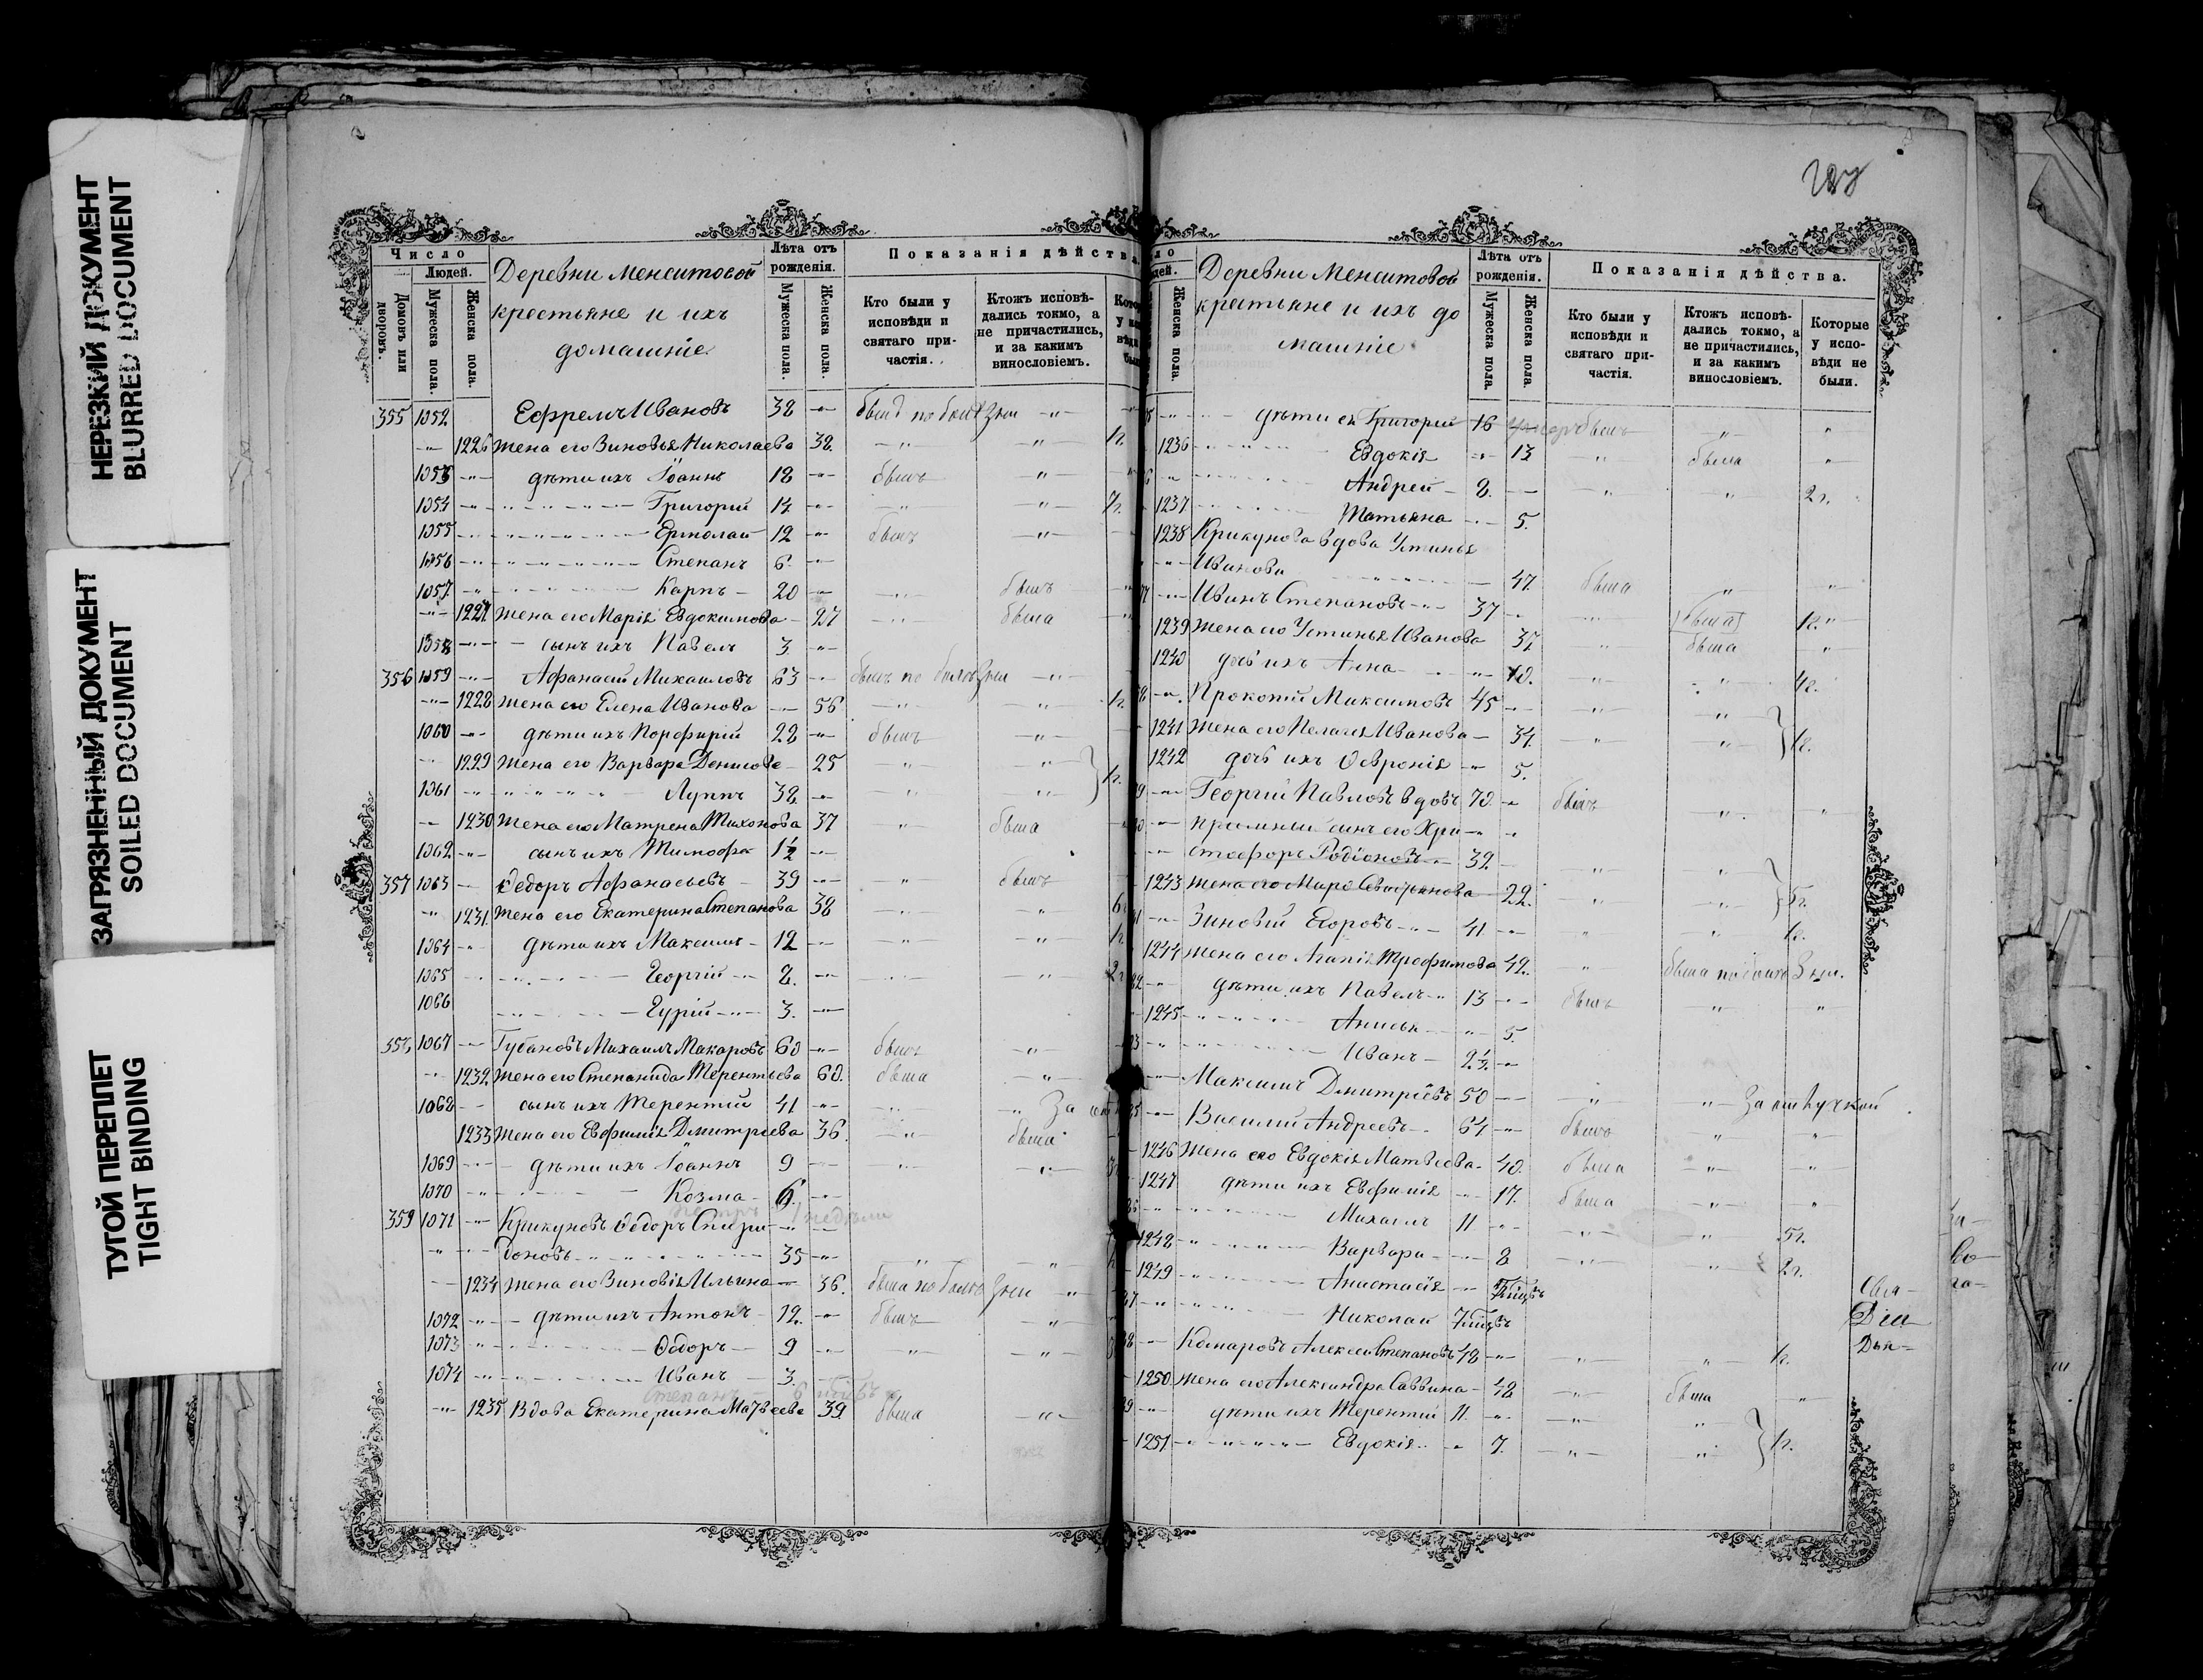 НЕРЕЗКИЙ ДОКУМЕНТ
BLURRED DOCUMENT
ЗАГРЯЗНЕННЫЙ ДОКУМЕНТ
SOILED DOCUMENT
ТУГОЙ ПЕРЕПЛЕТ
TIGHT BINDING
Число
Людей.
Домовъ или дворовъ.
Мужеска пола.
Женска пола.
Деревни Менситовой
крестьяне и ихъ
домашніе.
Лѣта отъ рожденія.
Мужеска пола.
Женска пола.
Показанія дѣйства
Кто были у исповѣди и святаго причастія.
Ктожъ исповѣдались токмо, а не причастились, и за какимъ винословіемъ.
355 1052 Ефремъ Ивановъ 38 былъ по болѣзни
1226 жена его Зиновья Николаева 38. 1г.
1053 дѣти ихъ Іоаннъ 18 былъ
1054 Григорій 14
1055 Ермолай 12 былъ
1056 Степанъ 6
1057 Карпъ 20 былъ
1227 жена его Марія Евдокимова 27 была
1058 сынъ ихъ Павелъ 3
356 1059 Афанасій Михаиловъ 63 былъ по болѣзни
1228 жена его Елена Иванова 56 1г.
1060 дѣти ихъ Порфирій 22 былъ
1229 жена его Варвара Денисова 25
1061 Луппъ 38 1г.
1230 жена его Матрена Тихонова 37 была
1062 сынъ ихъ Тимофей 1½
357 1063 Ѳедоръ Афанасьевъ 39 былъ
1231 жена его Екатерина Степанова 38
1064 дѣти ихъ Максимъ 12
1065 Георгій 8. 2г
1066 Гурій 3.
358 1067 Губановъ Михаилъ Макаровъ 60 былъ
1232 жена его Степанида Терентьева 60. была
1068 сынъ ихъ Терентій 41 За
1233 жена его Евфимія Дмитріева 36. была
1069 дѣти ихъ Іоаннъ 9
1070 Козма 6.
359 1071 Крикуновъ Ѳедоръ Спири
доновъ 35
1234 жена его Зиновія Ильина 36. была по болѣзни
1072 дѣти ихъ Антонъ 12. былъ
1073 Ѳедоръ 9
1074 Иванъ 3.
Степанъ
1235 Вдова Екатерина Матвѣева 39 была
Женска пола.
Деревни Менситовой
крестьяне и ихъ до
машніе
Лѣта отъ рожденія.
Мужеска пола.
Женска пола.
Показанія дѣйства.
Кто были у исповѣди и святаго причастія.
Ктожъ исповѣдались токмо, а не причастились, и за какимъ винословіемъ.
Которые у исповѣди не были.
дѣти ея Григорій 16 былъ
1236 Евдокія 13 была
Андрей 8. 2г.
1237 Татьяна 5.
1238 Крикунова вдова Устинья
Иванова 47. была
Иванъ Степановъ 37 1г.
1239 жена его Устинья Иванова 37 была
1240 дочь ихъ Анна 10. 4г.
Прокопій Максимовъ 45
1241 жена его Пелагея Иванова 34. 1г.
1242 дочь ихъ Ѳевронія 5.
Георгій Павловъ вдовъ 70. былъ
пріемный сынъ его Хри
стофоръ Родіоновъ 32.
1243 жена его Марѳ 22. 5г.
Зиновій Егоровъ 41 1г.
1244 жена его Агапія Трофимова 42. была
дѣти ихъ Павелъ 13 былъ
1245 Анисья 5.
Иванъ 2½
Максимъ Дмитріевъ 50 За отлучкой
Василій Андреевъ 64 былъ
1246 жена его Евдокія Матвѣева 40. была
1247 дѣти ихъ Евфимія 17. была
Михаилъ 11 5г.
1248 Варвара 8 2г.
1249 Анастасія
Николай 7 мѣц.
Комаровъ Алексѣй Степановъ 48 1г.
1250 жена его Александра Саввина 48 была
дѣти ихъ Терентій 11.
1251 Евдокія 7. 1г.